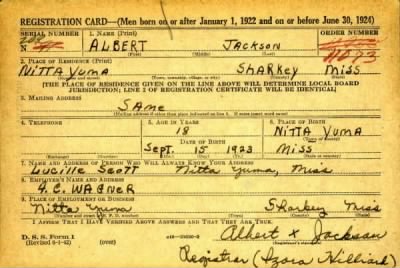 REGISTRATION CARD—(Men born on or after January 1, 1922 and on or before June 30, 1924)
SERIAL NUMBER 1. NAME (Print) ORDER NUMBER
N ALBERT JACKSON
(First) (Middle) (Last) 11093
2. PLACE OF RESIDENCE (Print)
Nitta Yuma Sharkey Miss
(Town, township, village, or city) (County) (State)
[THE PLACE OF RESIDENCE GIVEN ON THE LINE ABOVE WILL DETERMINE LOCAL BOARD
JURISDICTION; LINE 2 OF REGISTRATION CERTIFICATE WILL BE IDENTICAL]
3. MAILING ADDRESS
SAME
4. TELEPHONE 5. AGE IN YEARS 6. PLACE OF BIRTH
18 Nitta Yuma
DATE OF BIRTH (Town or county)
Sept. 15 1923 Miss
(Exchange) (Number) (Mo.) (Day) (Yr.) (State or country)
7. NAME AND ADDRESS OF PERSON WHO WILL ALWAYS KNOW YOUR ADDRESS
Lucille Scott Nitta Yuma, Miss
8. EMPLOYER'S NAME AND ADDRESS
WAGNER
9. PLACE OF EMPLOYMENT OR BUSINESS
Nitta Yuma Sharkey Miss
(Town) (County) (State)
I AFFIRM THAT I HAVE VERIFIED ABOVE ANSWERS AND THAT THEY ARE TRUE.
D. S. S. Form 1 Albert X Jackson
Registrar Hilliard